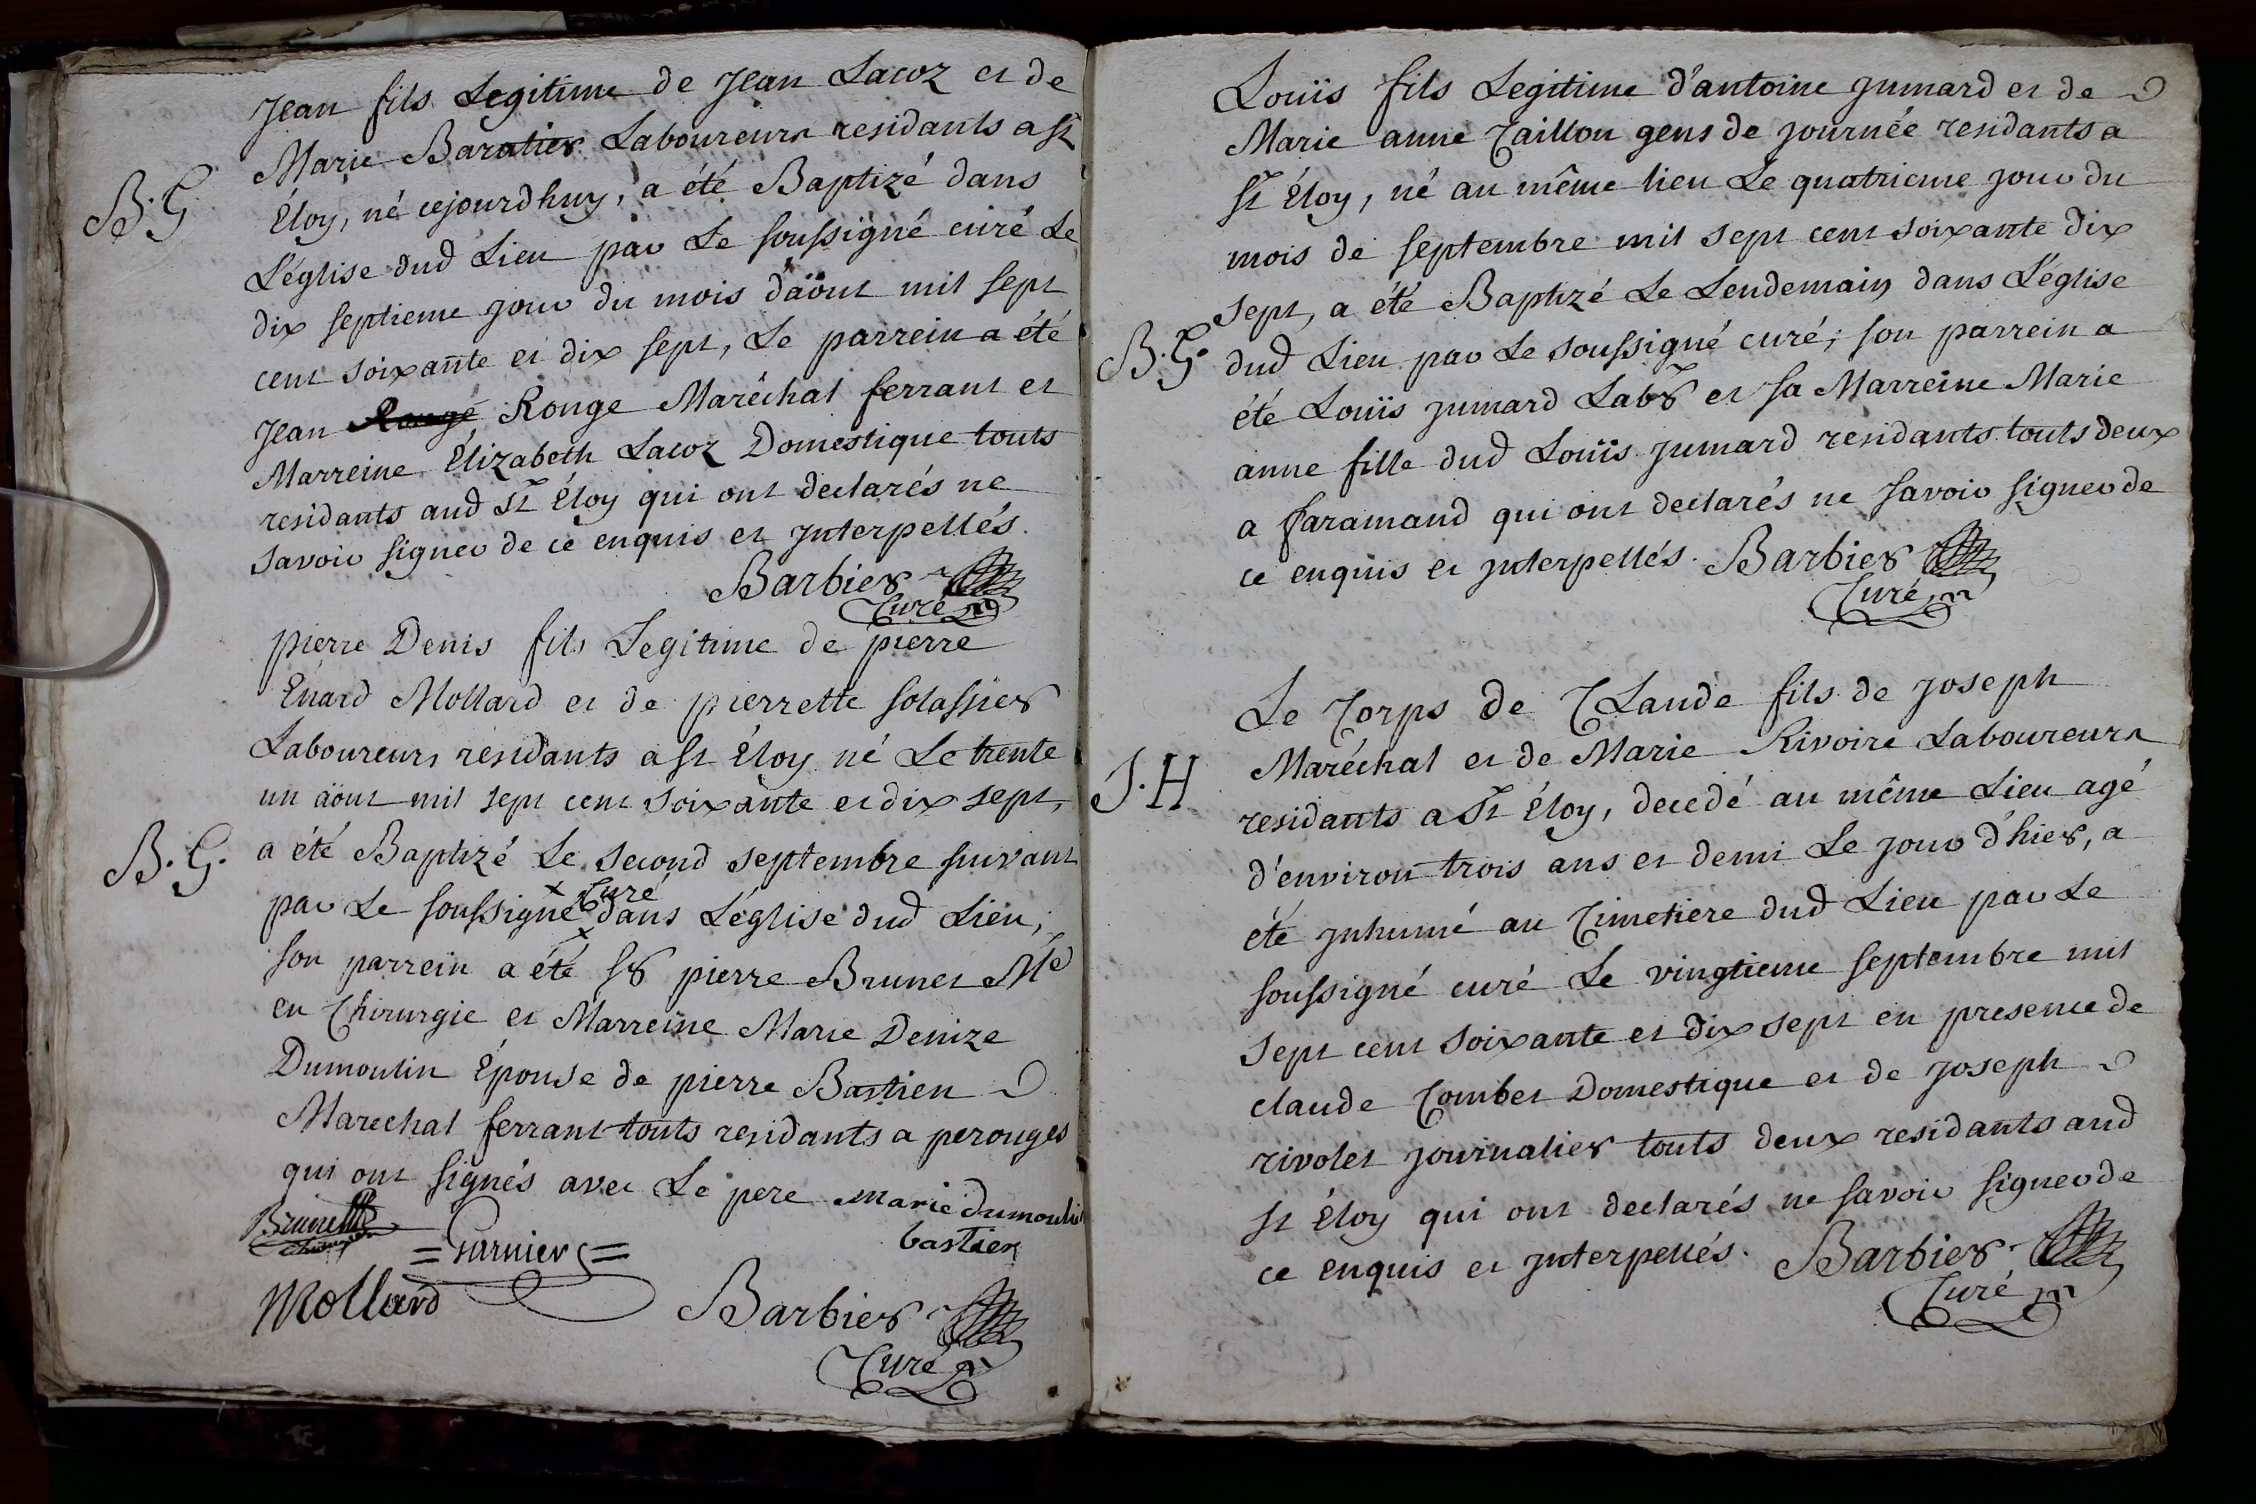 Jean fils Legitime de Jean Lacoz et de
Marie Baratier Laboureurs residants a St
B. G
Éloy, né cejourdhuy, a été Baptizé dans
L'église dud Lieu par Le soussigné curé Le
dix septieme jour du mois d'äoût mil sept
cent soixante et dix sept, Le parrein a été
Jean Rouge Rouge Maréchal ferrant et
Marreine Élizabeth Lacoz Domestique touts
residants aud St Éloy qui ont declarés ne
savoir signer de ce enquis et jnterpellés.
Barbier
Curé
pierre Denis fils Legitime de pierre
Énard Mollard et de pierrette solassier
Laboureurs résidants a St Éloy né Le trente
un äout mil sept cent soixante et dix sept,
B. G.
a été Baptizé Le second septembre suivant
curé
par Le soussigné x dans L'église dud Lieu,
son parrein a été sr pierre Brunet Me
en Chirurgie et Marreine Marie Denize
Dumoulin Épouse de pierre Bastien
Marechal ferrant touts residants a perouges
qui ont signés avec Le pere marie dumoulin
bastien
Brunet
= Garnier =
Mollard
Barbier
Curé
Louïs fils Legitime d'antoine jumard et de
Marie anne Taillon gens de journée residants a
St Éloy, né au même lieu Le quatrieme jour du
mois de septembre mil sept cent soixante dix
sept, a été Baptizé Le Lendemain dans L'église
B. G.
dud Lieu par Le soussigné curé; son parrein a
été Louïs jumard Labr et sa Marreine Marie
anne fille dud Louïs jumard residants touts deux
a faramand qui ont declarés ne savoir signer de
ce enquis et jnterpellés. Barbier
Curé
Le Corps de CLaude fils de joseph
Maréchal et de Marie Rivoire Laboureurs
J. H
residants a St Éloy, decedé au même Lieu agé
d'environ trois ans et demi Le jour d'hier, a
été jnhumé au Cimetiere dud Lieu par Le
soussigné curé Le vingtieme septembre mil
sept cent soixante et dix sept en presence de
claude Combet Domestique et de joseph
rivolet journalier touts deux residants aud
St Éloy qui ont declarés ne savoir signer de
ce enquis et jnterpellés. Barbier
Curé